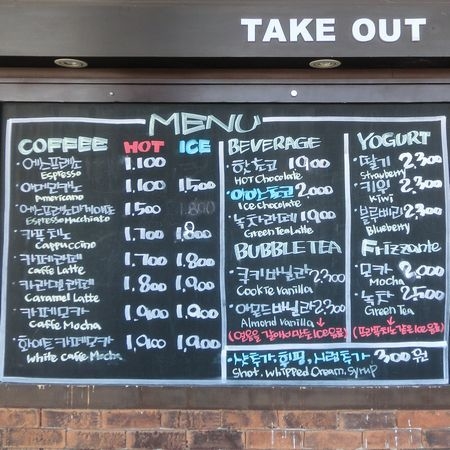 TAKE OUT
MENU
COFFEE HOT ICE
에스프레소 1,100
Espresso
아메리카노 1,100 1,500
Americano
에스프레소마끼아또 1,500 1,800
Espresso Macchiato
카푸치노 1,700 1,800
Cappuccino
카페라떼 1,700 1,800
Caffe Latte
카라멜라떼 1,800 1,900
Caramel Latte
카페모카 1,900 1,900
Caffe Mocha
화이트 카페모카 1,900 1,900
White Caffe Mocha
BEVERAGE
핫쵸코 1,900
Hot Chocolate
아이스쵸코 2,000
Ice Chocolate
녹차라떼 1,900
Green Tea Latte
BUBBLE TEA
쿠키바닐라 2,300
Cookie Vanilla
아몬드바닐라 2,300
Almond Vanilla
YOGURT
딸기 2,300
Strawberry
키위 2,300
Kiwi
블루베리 2,300
Blueberry
Frizzante
모카 2,000
Mocha
녹차 2,500
Green Tea
샷추가, 휘핑, 시럽추가 300원
Shot, Whipped Cream, Syrup